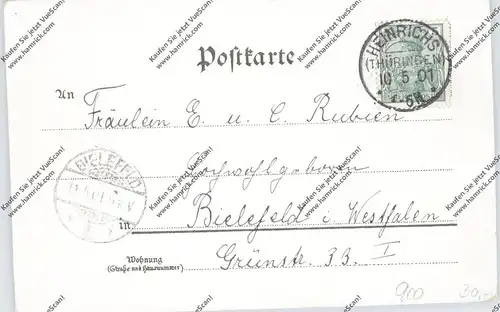 Postkarte
HEINRICHS
(THÜRINGEN)
10 5 01
An
Fräulein E. u. C. Rubien
Hochwohlgeboren
BIELEFELD
in Bielefeld i. Westfalen
Wohnung
(Straße und Hausnummer)
Grünstr. 33. I
900 30,-
Kaufen Sie jetzt VueScan!
www.hamrick.com